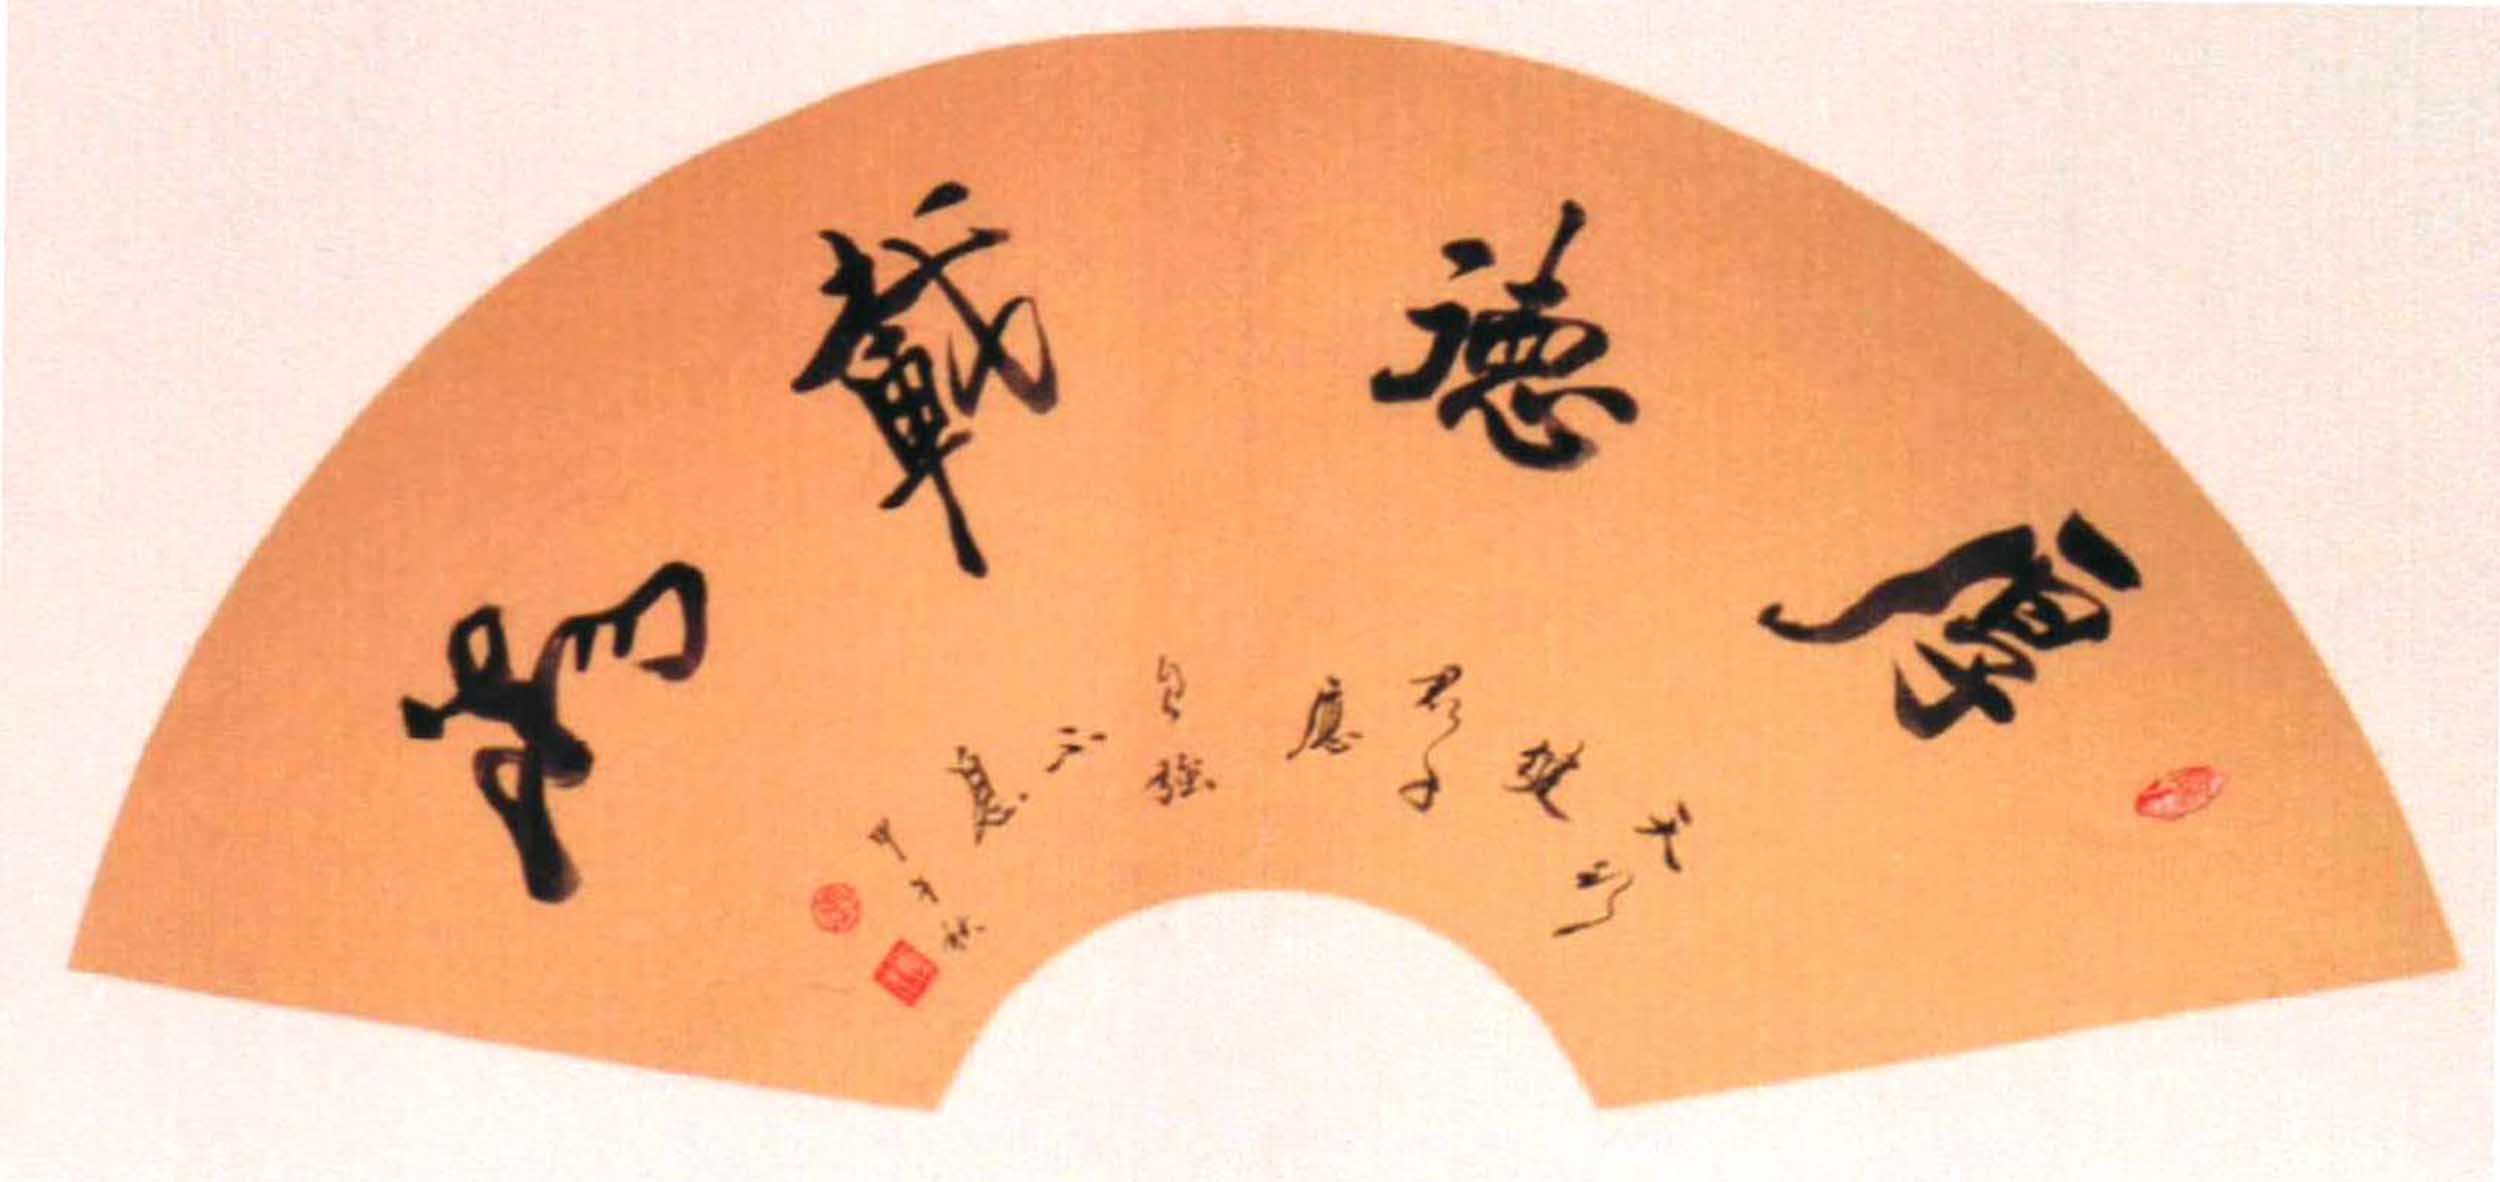 厚德載物
天行
健
君子
應
自強
不
息
甲午秋